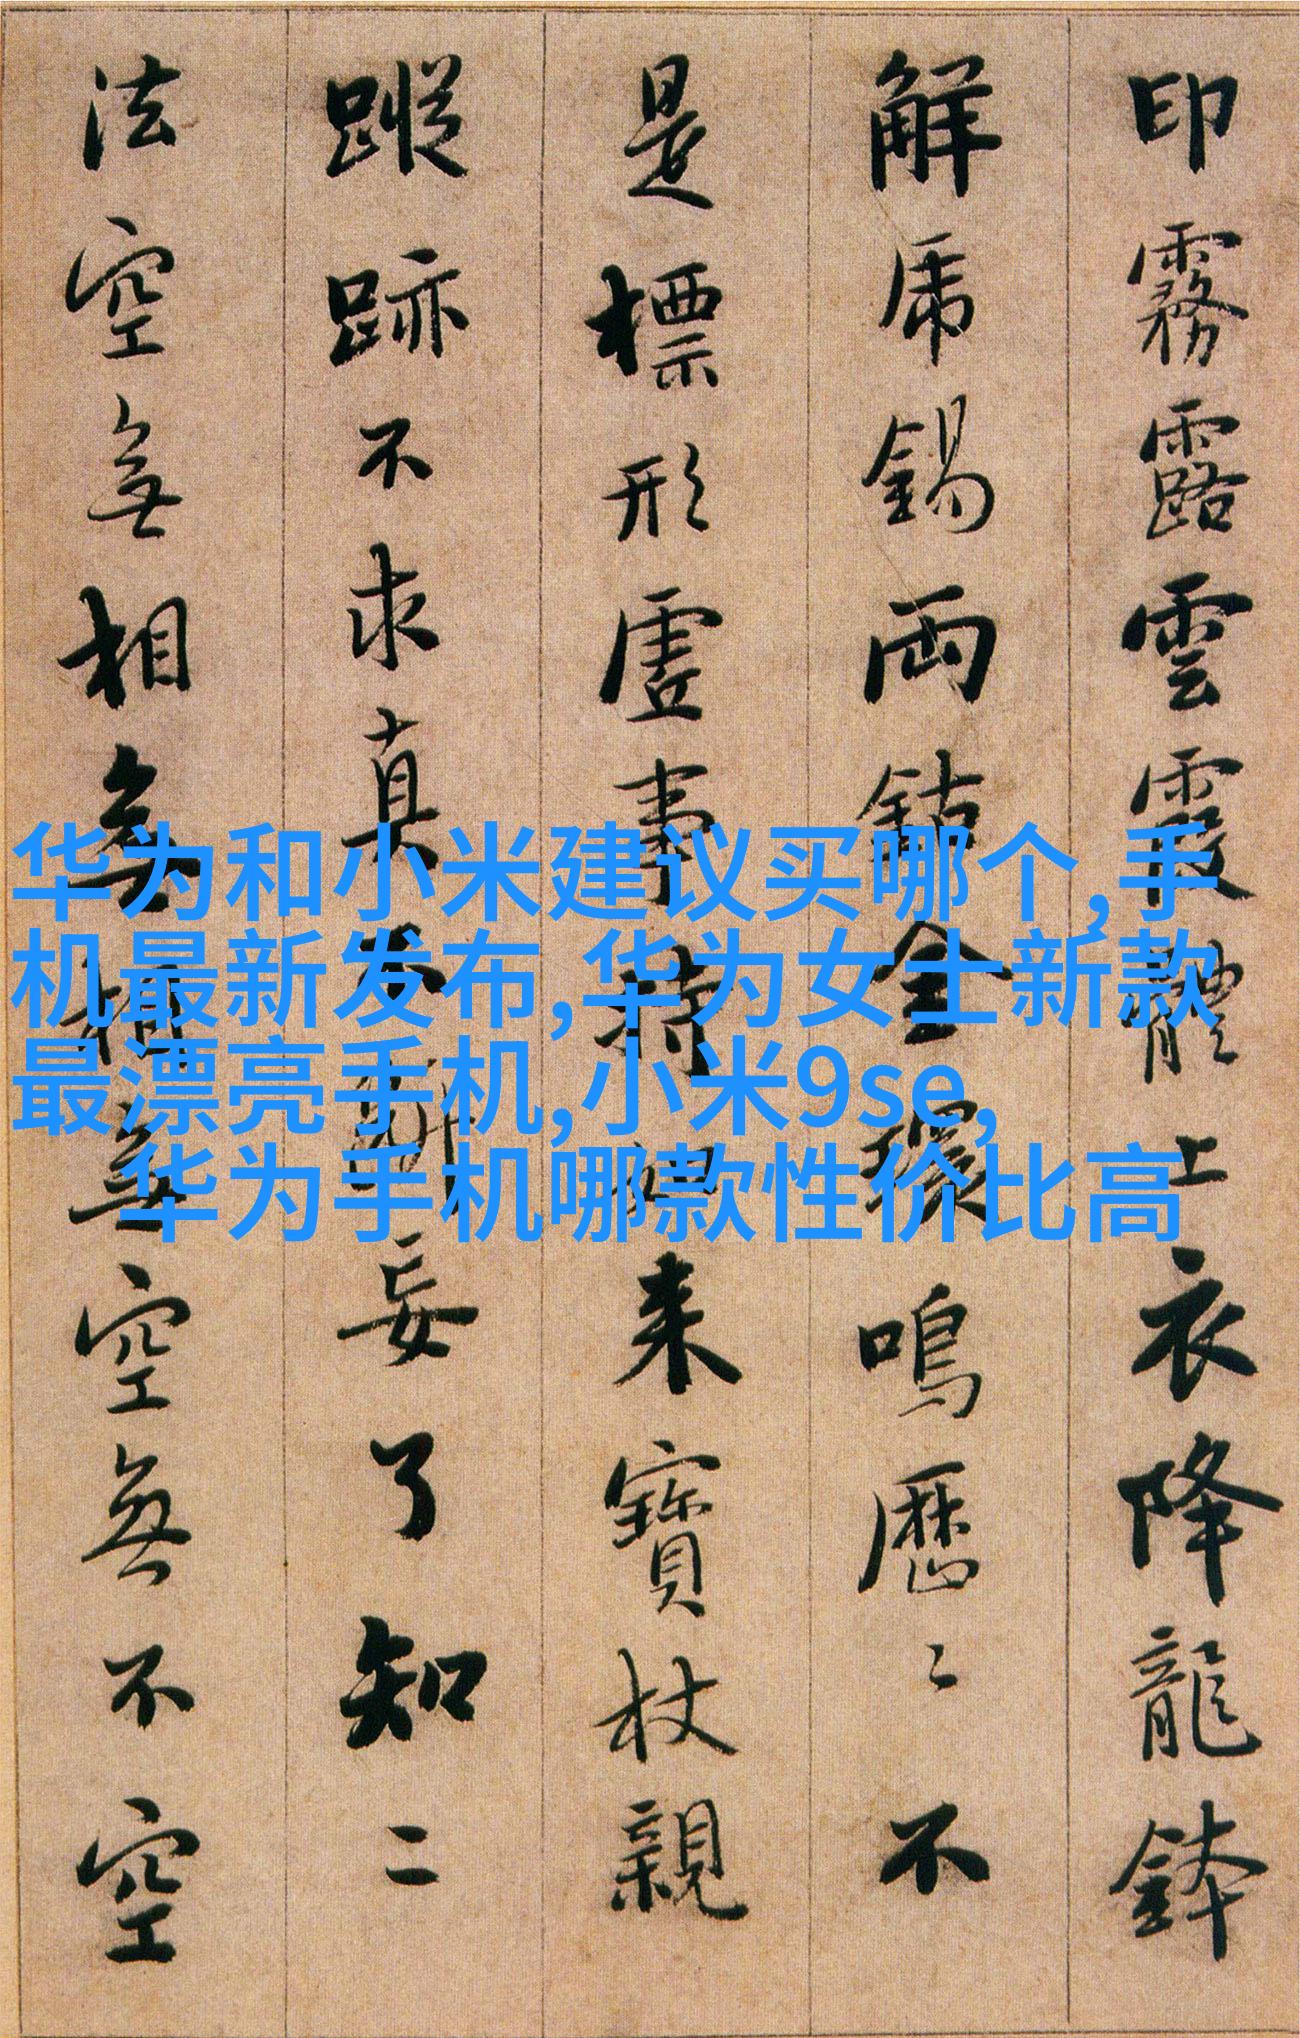 印霧露雲霞體上衣降龍鉢
解虎錫兩鈷金環鳴歷〻不
是標形虛事持如來寶杖親
蹤跡不求真不斷妄了知二
法空無相無相無空無不空
华为和小米建议买哪个,手
机最新发布,华为女士新款
最漂亮手机,小米9se,
华为手机哪款性价比高